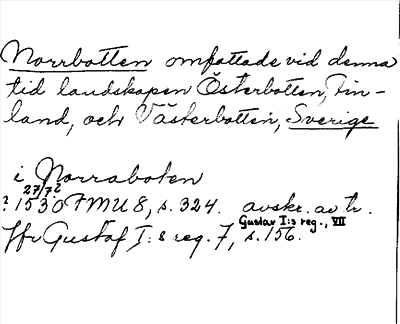 Norrbotten omfattade vid denna
tid landskapen Österbotten, Fin-
land, och Västerbotten, Sverige
i Norraboten
27/7
? 1530 FMU 8, s. 324. avskr. av tr.
Gustav I:s reg., VII
Jfr Gustaf I:s reg. 7, s. 156.